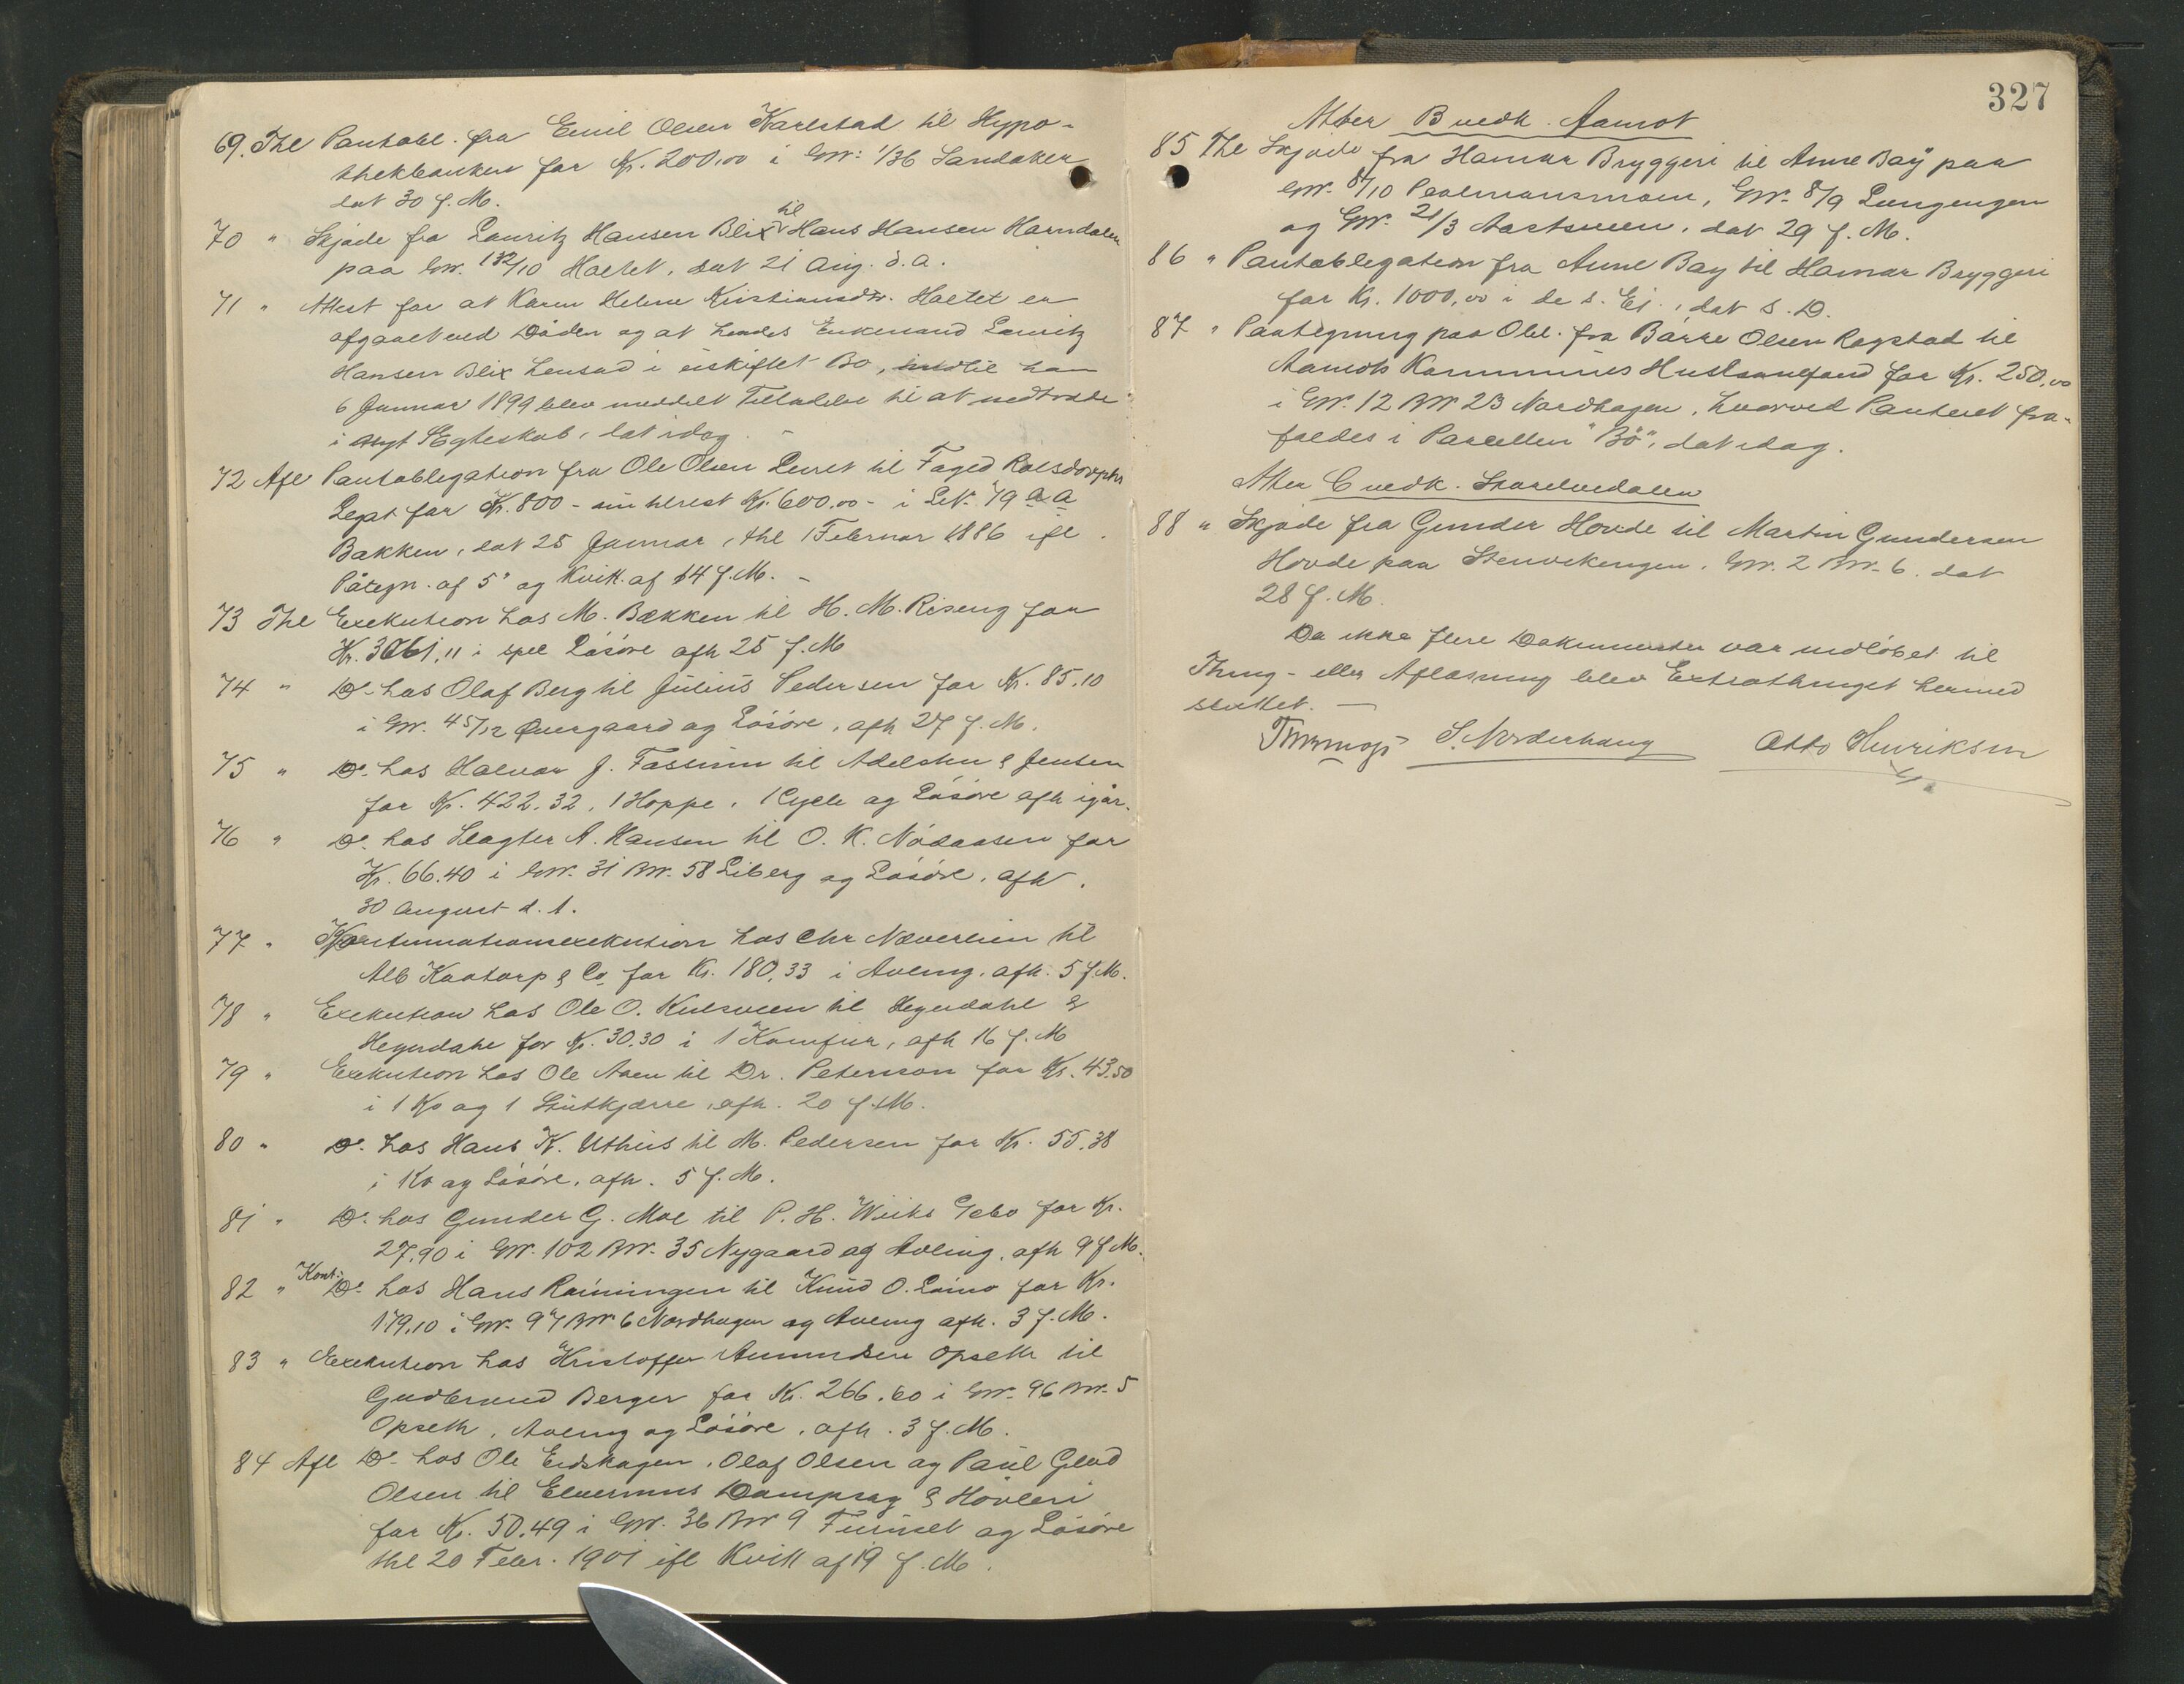 69. Thl Pantobl. fra Emil Olsen Karlstad til Hypo-
thekbanken for Kr. 200,00 i Gnr: 1/36 Sandaker
dat 30 f. M.
70 " Skjøde fra Lauritz Hansen Blix til Hans Hansen Harndalen
paa Gnr. 132/10 Holtet, dat 21 Aug. d. a.
71 " Attest for at Karen Helene Kristiansdtr. Holtet er
afgaaet ved Døden og at hendes Enkemand Lauritz
Hansen Blix hensad i uskiftet Bo, indtil han
6 Januar 1899 blev meddelt Tilladelse til at indtræde
i nyt Ægteskab, dat idag. -
72 Afl Pantobligation fra Ole Olsen Leiret til Foged Rolsdorphs
Legat for Kr. 800 - nu tilrest Kr. 600,00 - i LN. 79 a a
Bakken, dat 25 Januar, thl 1 Februar 1886 ifl.
Påtegn. af 5' og Kvitt. af 14 f. M. -
73 Thl Exekution hos M. Bækken til H. M. Riseng for
Kr. 3061,11 i spec Løsøre afh 25 f. M
74 " Do. hos Olaf Berg til Julius Pedersen for Kr. 85.10
i Gnr. 45/12 Øvergaard og Løsøre, afh 27 f. M.
75 " Do. hos Halvor J. Fossum til Adelsten & Jensen
for Kr. 422,32, 1 Hoppe, 1 Cycle og Løsøre afh igår.
76 " Do. hos Slagter A. Hansen til O. K. Nødaasen for
Kr. 66.40 i Gnr. 31 Bnr. 58 Liberg og Løsøre, afh.
30 August d. A.
77 " Kontinuationsexekution hos Chr Næverlien til
Alb Kaatorp & Co, for Kr. 180,33 i Avling, afh. 5 f. M.
78 " Exekution hos Ole O. Kulsveen til Hegerdahl &
Hegerdahl for Kr. 30.30 i 1 Komfur, afh 16 f. M
79 " Exekution hos Ole Aaen til Dr. Peterson for Kr. 43.50
i 1 Ko og 1 Stutkjærre, afh. 20 f. M.
80 " Do. hos Hans K. Uthus til M. Pedersen for Kr. 55.38
i Ko og Løsøre, afh. 5 f. M.
81 " Do. hos Gunder G. Moe til P. H. Wiiks Gebo for Kr.
27.90 i Gnr. 102 Bnr. 35 Nygaard og Avling, afh 9 f M.
82 " Kont: Do. hos Hans Røiningen til Knud O. Løino for Kr.
179,10 i Gnr. 97 Bnr 6 Nordhagen og Avling afh. 3 f. M.
83 " Exekution hos Kristoffer Amundsen Opseth til
Gudbrand Berger for Kr. 266.60 i Gnr. 96 Bnr. 5
Opseth, Avling og Løsøre, afh. 3 f. M.
84 Afl Do. hos Ole Eidshagen, Olaf Olsen og Paul Glad
Olsen til Elverums Dampsag & Høvleri
for Kr. 50.49 i Gnr. 36 Bnr 9 Furuset og Løsøre
thl 20 Febr. 1901 ifl Kvitt af 19 f. M.
327
Atter B vedk. Aamot
85 Thl Skjøde fra Hamar Bryggeri til Anne Bay paa
Gnr. 8/10 Paalmansmoen, Gnr. 8/9
og Gnr. 21/3 Aartsveen, dat 29 f. M.
86 " Pantobligation fra Anne Bay til Hamar Bryggeri
for Kr. 1000,00 i de s. Ej., dat s. D.
87 " Paategning paa Obl. fra Bårre Olsen Rogstad til
Aamots Kommunes Huslaanefond for Kr. 250,00
i Gnr. 12 Bnr 23 Nordhagen, hvorved Panteret fra-
faldes i Parcellen "Bö", dat idag.
Atter C vedk. Storelvedalen
88 " Skjøde fra Gunder Hovde til Martin Gundersen
Hovde paa Stenvikengen, Gnr. 2 Bnr. 6, dat
28 f. M.
Da ikke flere Dokumenter var indløbet til
Thing- eller Aflæsning blev Extrathinget hermed
sluttet. -
S. Norderhaug Otto Henriksen